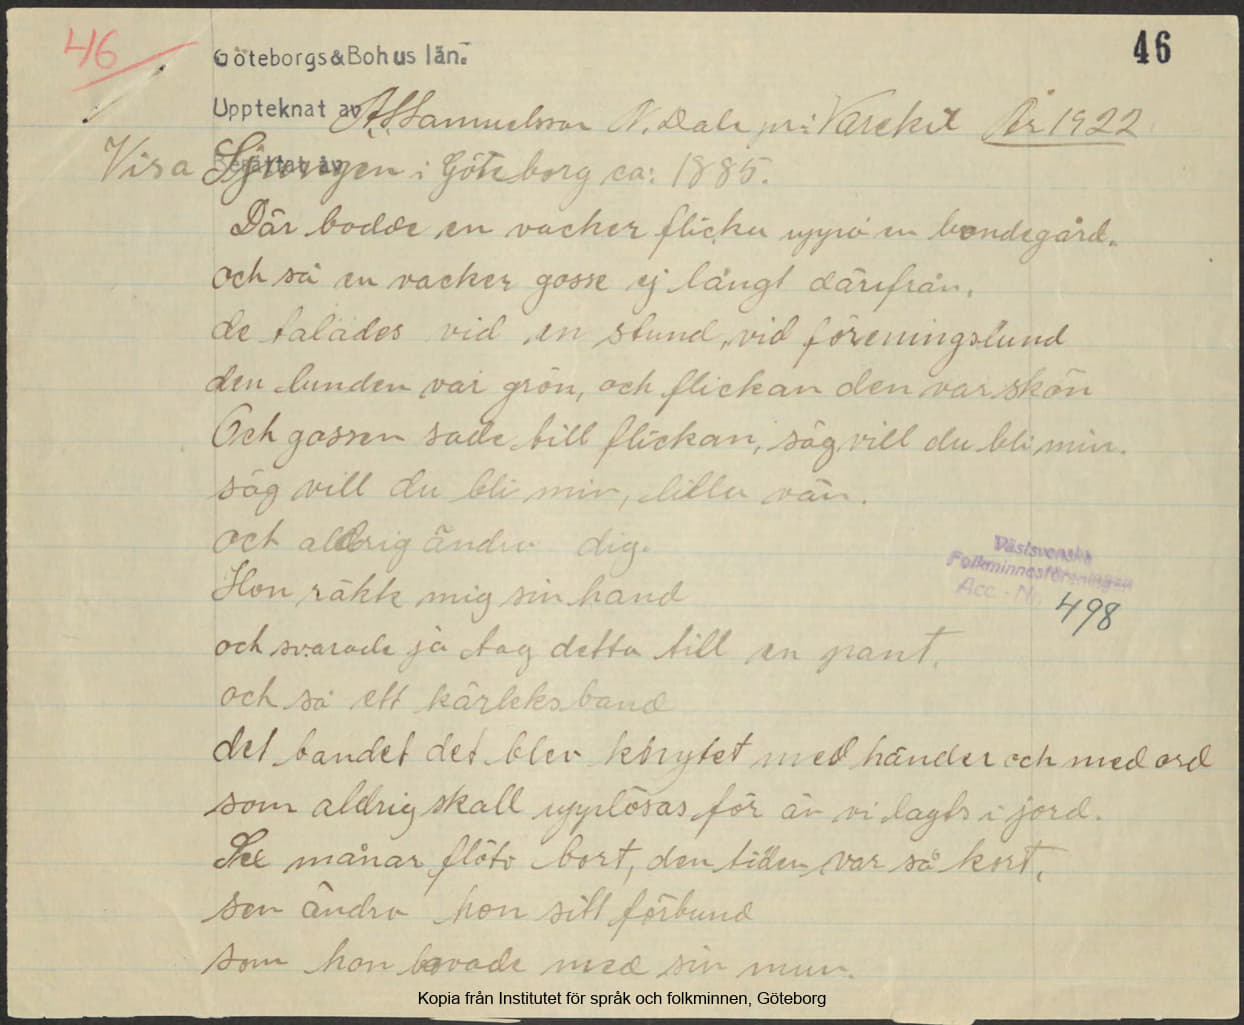 46
46
Göteborgs&Bohus län.
Uppteknat av A.S.Samuelsson N. Dale pr: Varekil År 1922
Visa Sjungen i Göteborg ca: 1885.
Där bodde en vacker flicka uppå en bondegård.
och så en vacker gosse ej långt därifrån.
de talades vid en stund, vid föreningslund
den lunden var grön, och flickan den var skön
Och gossen sade till flickan, säg vill du bli min.
säg vill du bli min, lilla vän.
och aldrig ändra dig.
Hon räkk mig sin hand
och svarade ja tag detta till en pant.
och så ett kärleks band
det bandet det blev knytet med händer och med ord
som aldrig skall upplösas för än vi lagts i jord.
Sex månar flöto bort, den tiden var så kort,
sen ändra hon sitt förbund
som hon lovade med sin mun.
Västsvenska
Folkminnesföreningen
Acc.-Nr. 498
Kopia från Institutet för språk och folkminnen, Göteborg